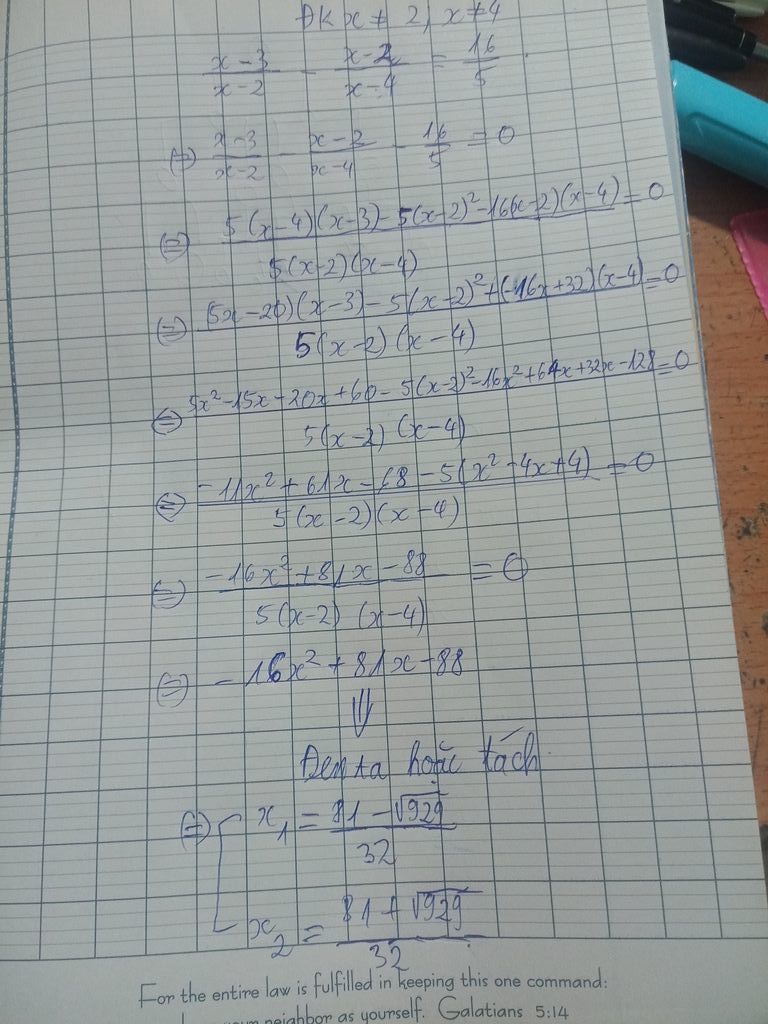 ĐK x ≠ 2, x ≠ 4
x-3/x-2 - x-2/x-4 = 16/5
(=) x-3/x-2 - x-2/x-4 - 16/5 = 0
(=) 5(x-4)(x-3) - 5(x-2)² - 16(x-2)(x-4)/5(x-2)(x-4) = 0
(=) (5x-20)(x-3) - 5(x-2)² + (-16x+32)(x-4)/5(x-2)(x-4) = 0
(=) 5x² - 15x - 20x + 60 - 5(x-2)² - 16x² + 64x + 32x - 128/5(x-2)(x-4) = 0
(=) -11x² + 61x - 68 - 5(x² - 4x + 4)/5(x-2)(x-4) = 0
(=) -16x² + 81x - 88/5(x-2)(x-4) = 0
(=) -16x² + 81x - 88
⇓
Đenta hoặc tách
(=) [ x₁ = 81 - √929/32
x₂ = 81 + √929/32
For the entire law is fulfilled in keeping this one command:
your neighbor as yourself. Galatians 5:14